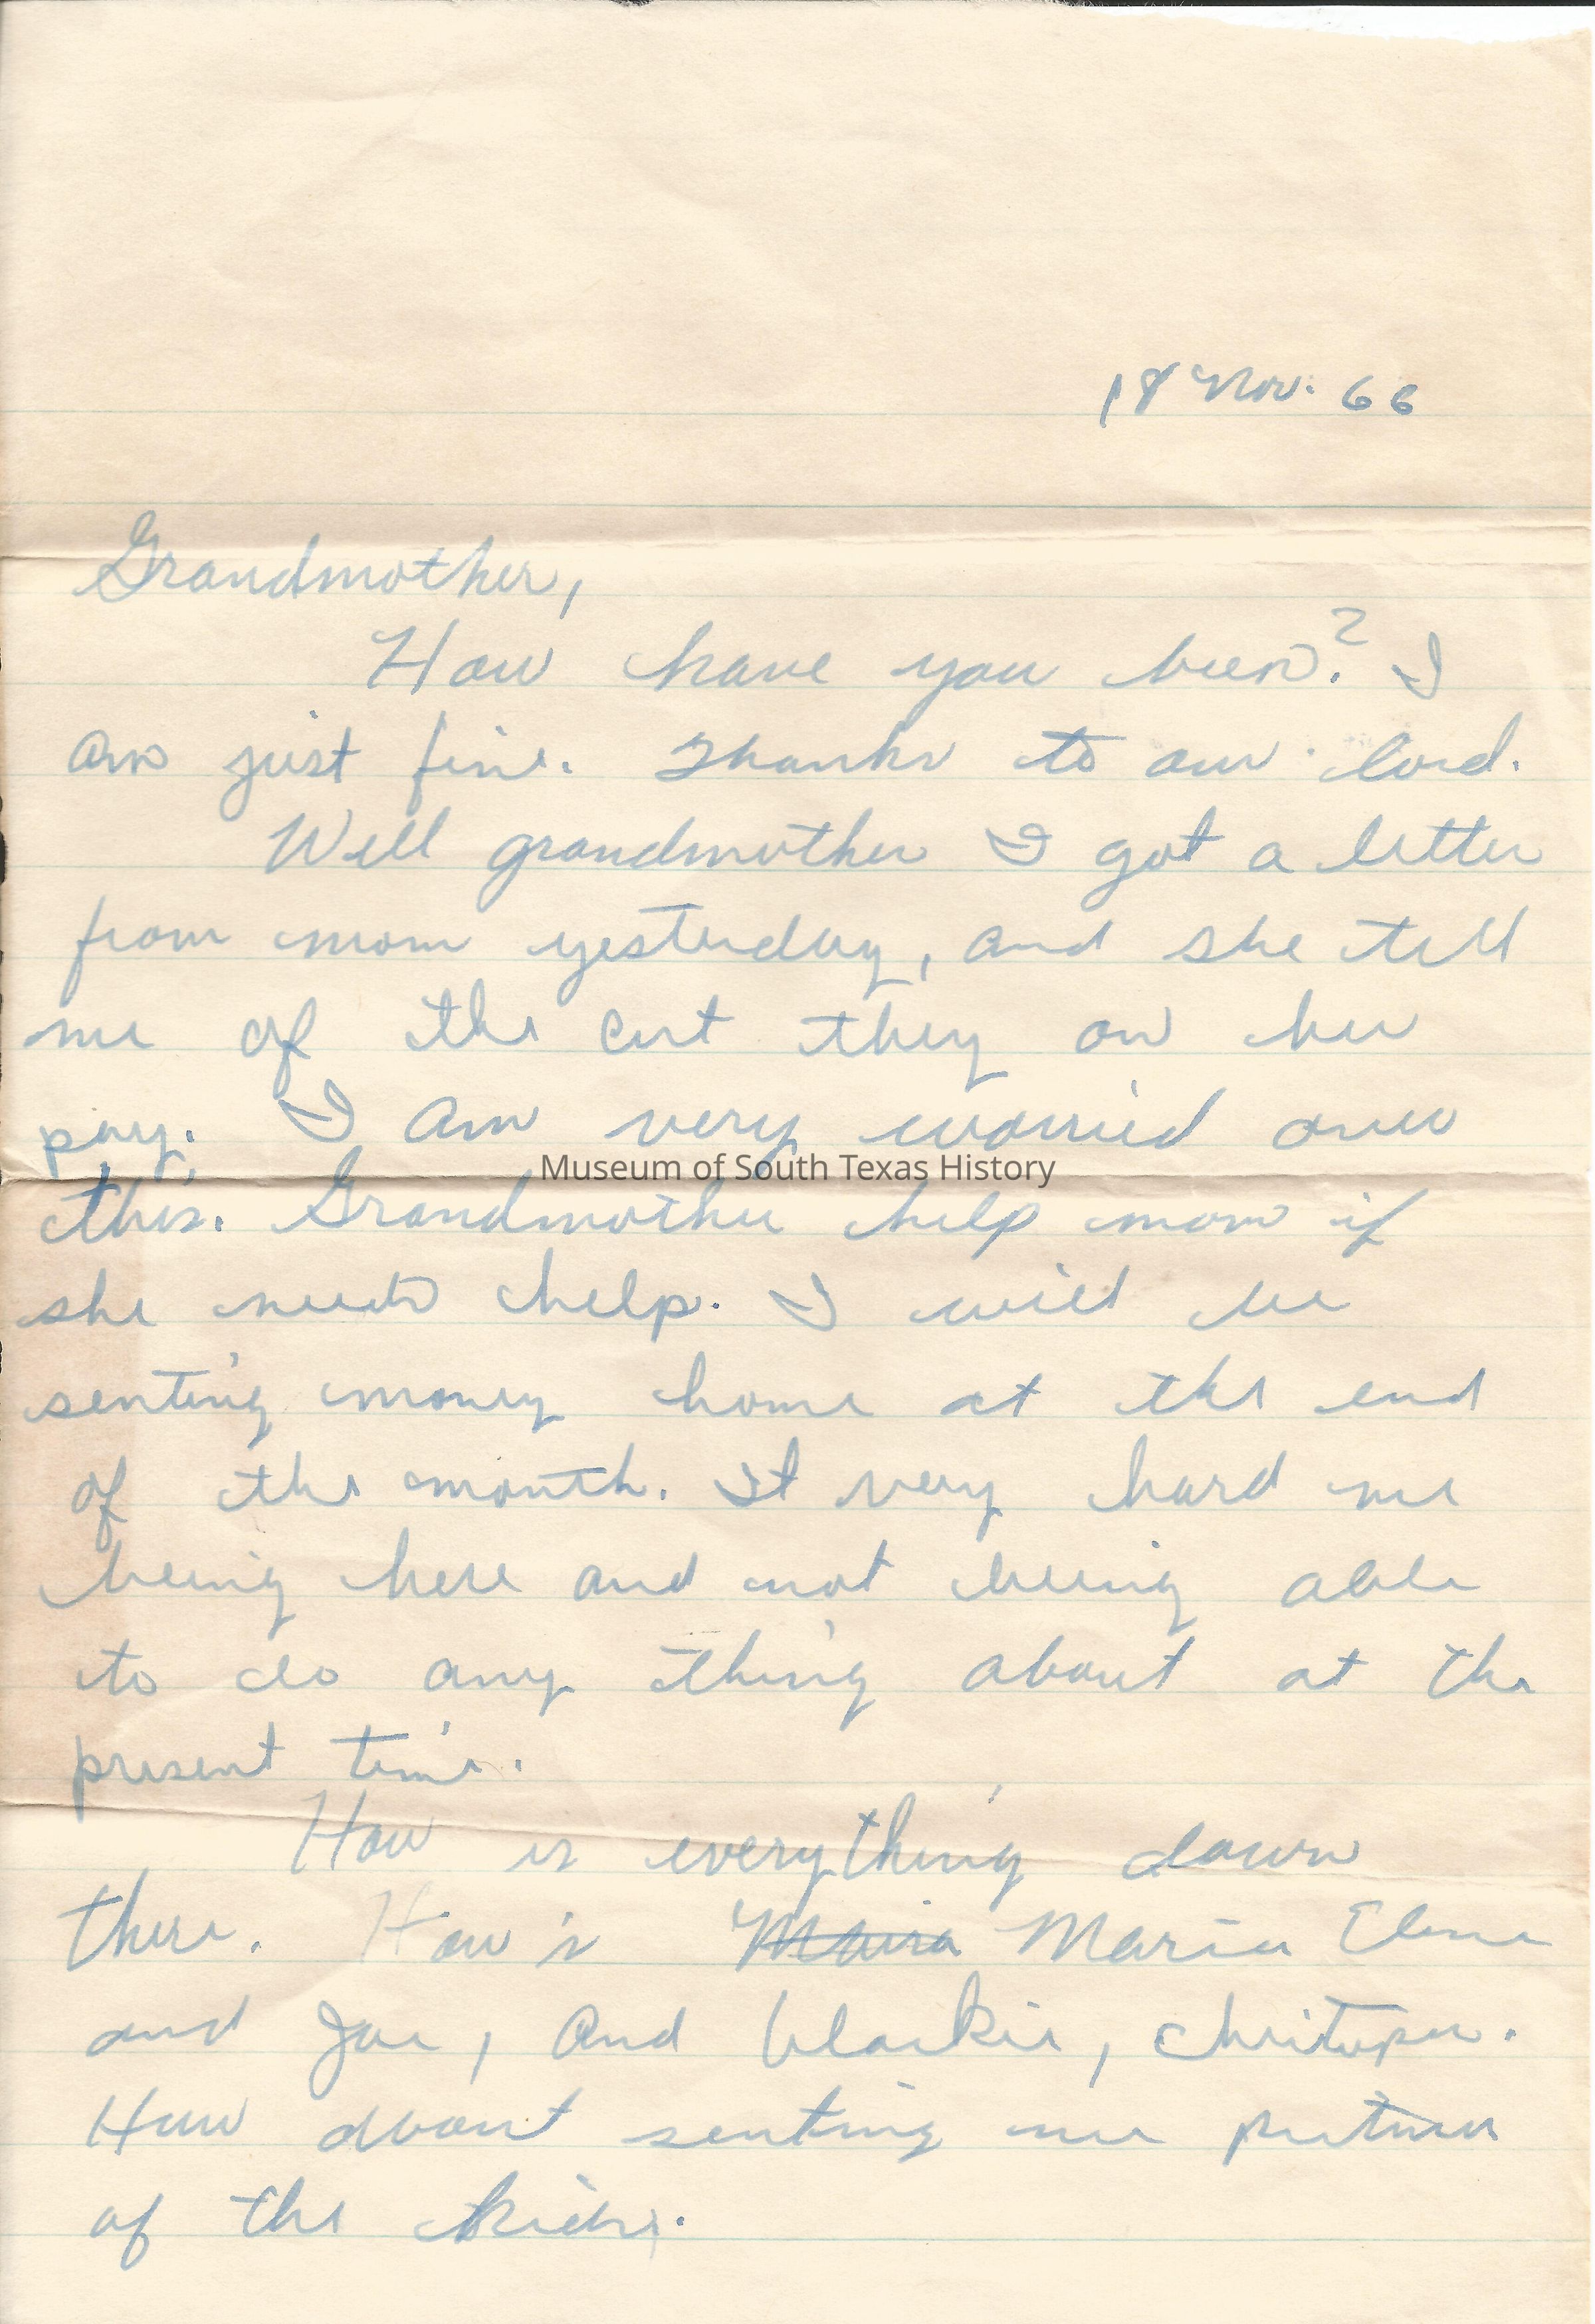 18 Nov. 66
Grandmother,
How have you been? I
am just fine. Thanks to our lord.
Well grandmother I got a letter
from mom yesterday, and she tell
me of the cut they on her
pay. I am very worried over
Museum of South Texas History
this. Grandmother help mom if
she needs help. I will be
senting money home at the end
of the month. It very hard me
being here and not being able
to do any thing about at the
present time.
How is everything down
there. How is Maira Maria Elena
and Joe, and blackie,
How about senting me
of the kids.